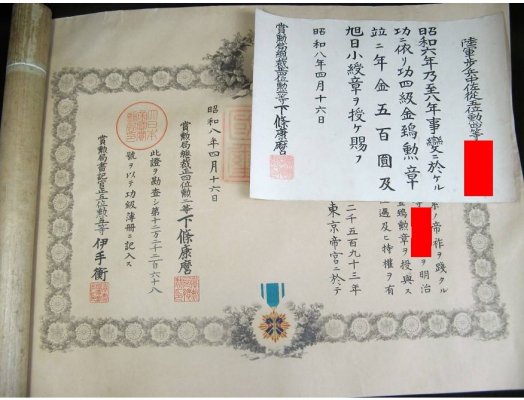 陸軍歩兵中佐從五位勳四等
昭和六年乃至八年事變ニ於ケル
功ニ依リ功四級金鵄勲章
竝ニ年金五百圓及
旭日小綬章ヲ授ケ賜フ
昭和八年四月十六日
賞勲局總裁正四位勲二等下條康麿
ノ帝祚ヲ踐
明治
金鵄勲章ヲ授與ス
及ヒ特權ヲ有
二千五百九十三年
東京帝宮ニ於テ
昭和八年四月十六日
賞勲局總裁正四位勲二等下條康麿
此證ヲ勘査シ第十二万二千二百六十八
號ヲ以テ功級簿冊ニ記入ス
賞勲局書記官正五位勲五等伊手衛